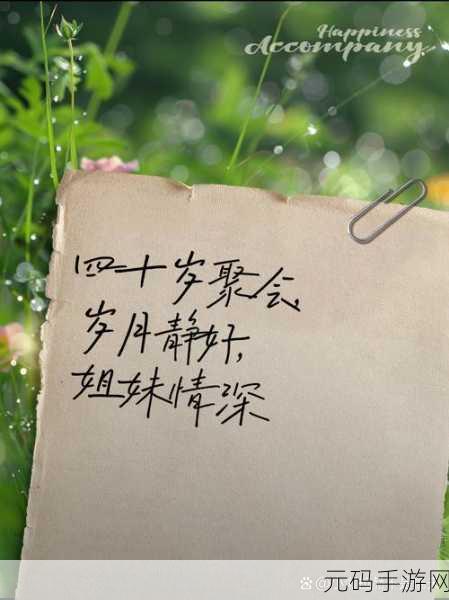 Happiness
Accompany
四十岁聚会、
岁月静好,
姐妹情深
元码手游网